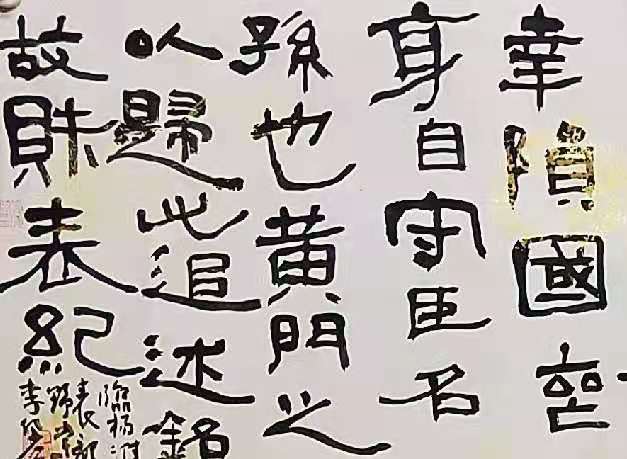 幸隕國喪
身自守臣名
孫也黃門之
以歸此追述銘
故財表紀
臨楊淮
表
李